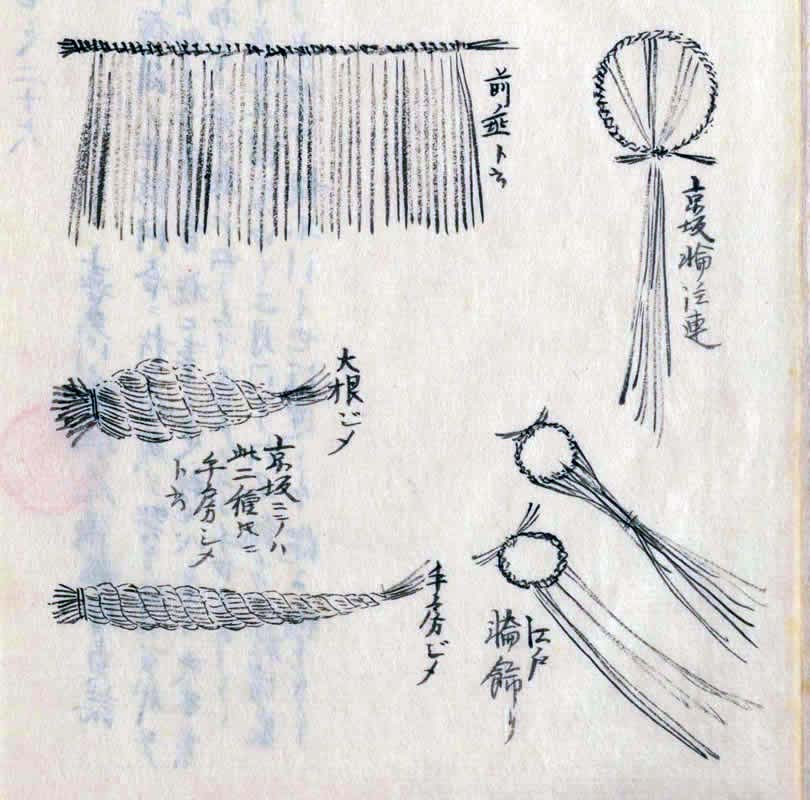 京坂輪注連
前垂ト云
大根ジメ
京坂ニテハ
此二種共ニ
牛房シメ
ト云
牛房ジメ
江戸
輪飾り